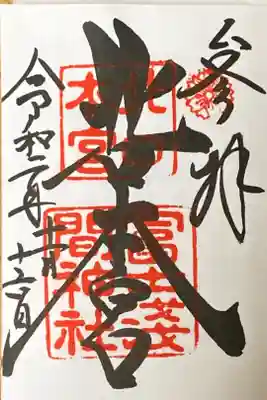 参拝
北口本宮
北口
本宮
冨士淺
間神社
令和二年十一月